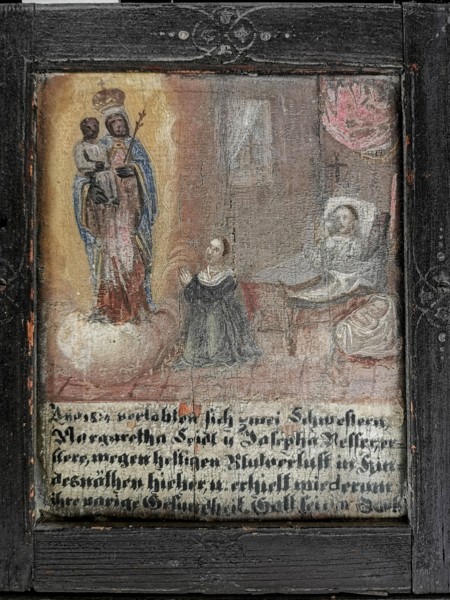 verlobten sich zwei Schwestern,
Margaretha Seidl u. Josepha
wegen heftigen Blutverlust in Kin-
desnöthen hieher, u. erhielt wiederum
ihre vorige Gesundheit. Gott sei